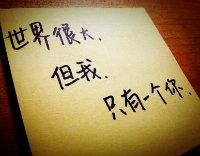 世界很大.
但我.
只有一个你.